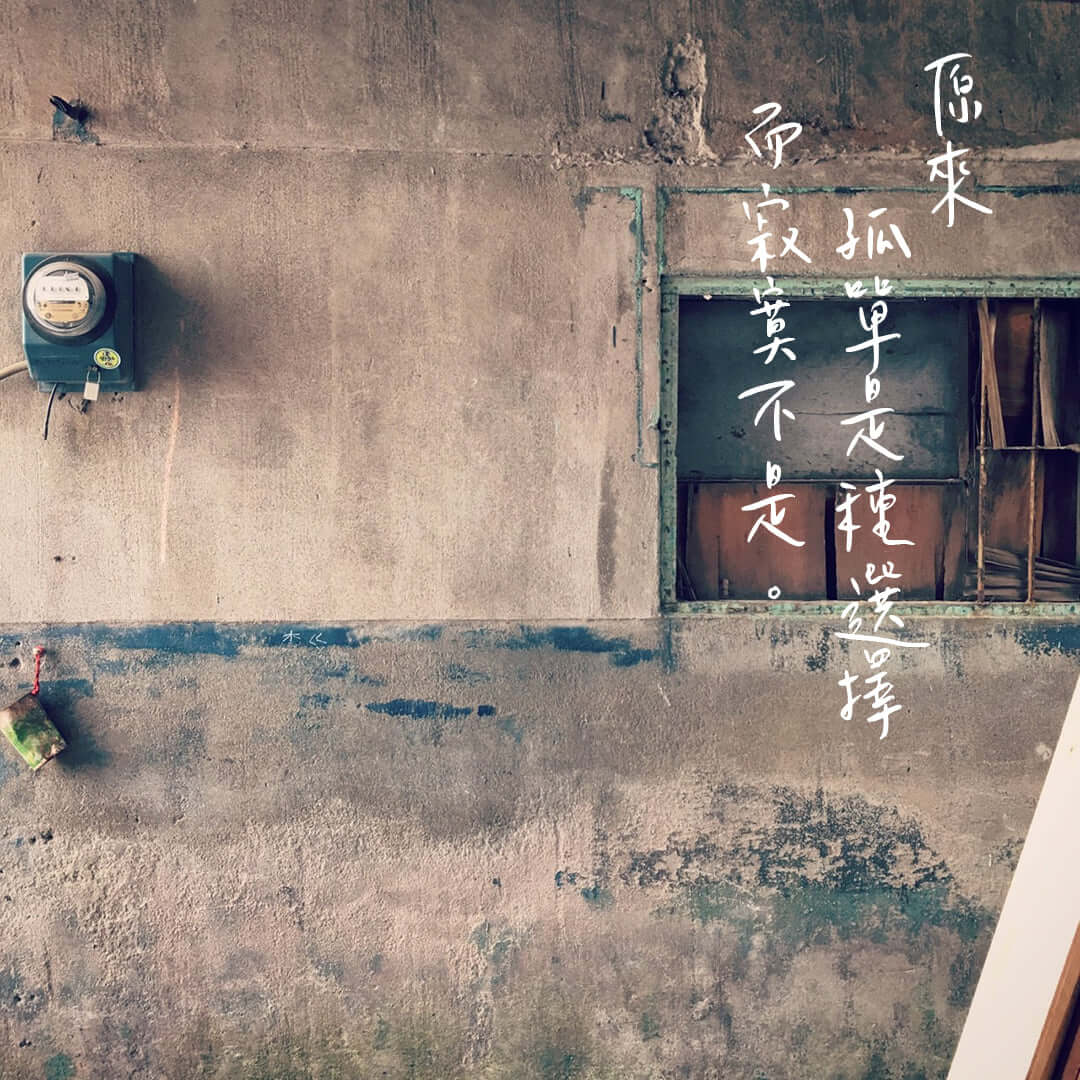 原來
孤單是種選擇
而寂寞不是。